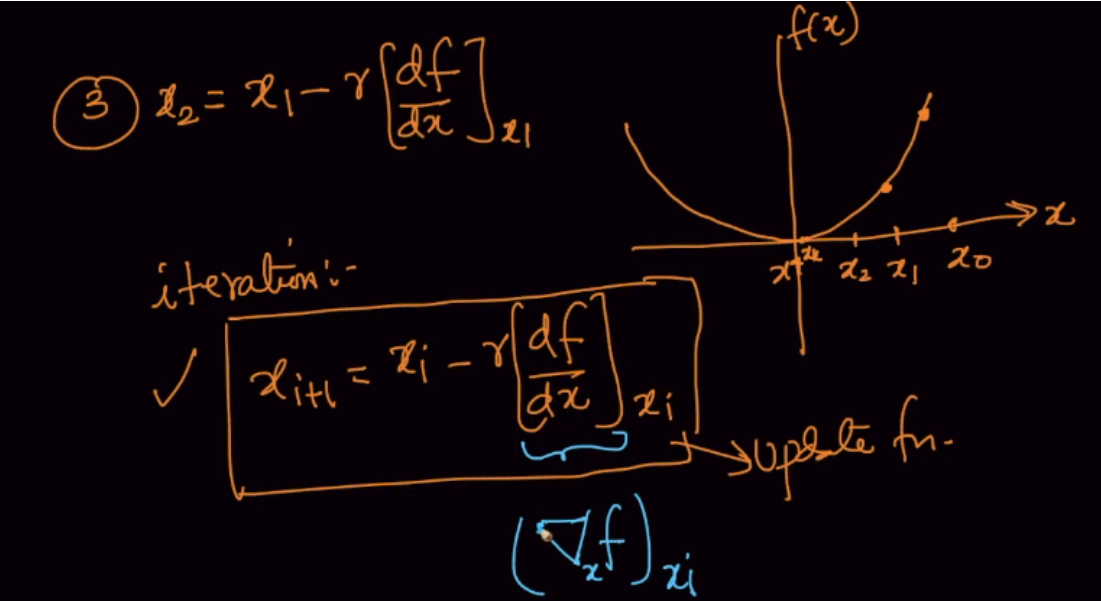 f(x)
③ x₂ = x₁ - r[df/dx]x₁
x
x* xₖ x₂ x₁ x₀
iteration:-
✓ xᵢ₊₁ = xᵢ - r[df/dx]xᵢ
→ update fn.
(∇ₓf)xᵢ